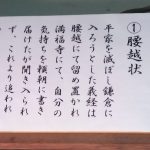 ①腰越状
平家を滅ぼし鎌倉に
入ろうとした義経は
腰越にて留め置かれ
満福寺にて、自分の
気持ちを頼朝に書き
届けたが聞き入られ
ず、これより追われ